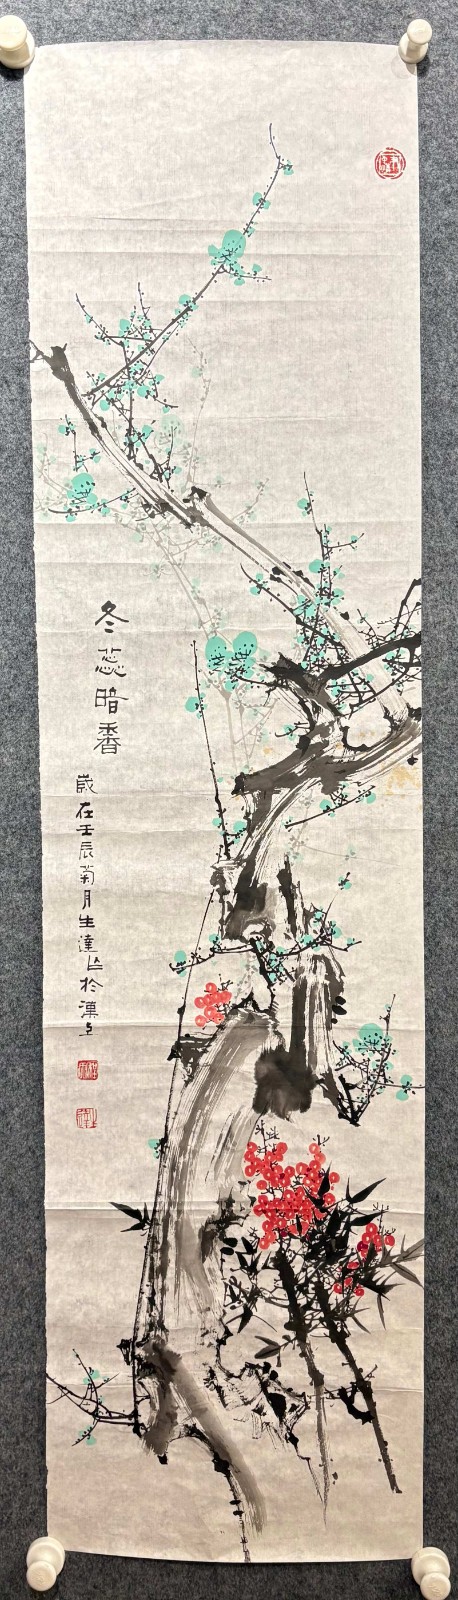 冬蕊暗香
歲在壬辰菊月生達作於漢上